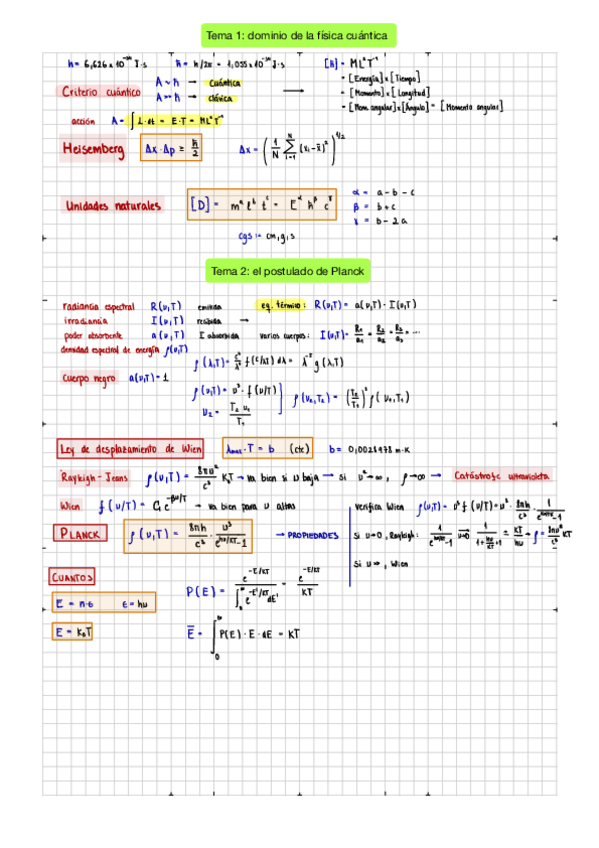 Tema 1: dominio de la física cuántica
h = 6,626 x 10⁻³⁴ J·s ħ = h/2π = 1,055 x 10⁻³⁴ J·s [h] = ML²T⁻¹
= [Energía] x [Tiempo]
= [Momento] x [Longitud]
= [Mom. angular] x [Ángulo] = [Momento angular]
Criterio cuántico A ~ ħ → cuántica
A >> ħ → clásica
acción A = ∫ L·dt = E·T = ML²T⁻¹
Heisemberg Δx · Δp ≥ ħ/2 Δx = (1/N ∑ᵢ₌₁ᴺ (xᵢ - x̄)²)^1/2
Unidades naturales [D] = mᵃ lᵇ tᶜ = E^α ħ^β c^γ
α = a - b - c
β = b + c
γ = b - 2a
cgs := cm, g, s
Tema 2: el postulado de Planck
radiancia espectral R(ν,T) emitida eq. térmico: R(ν,T) = a(ν,T) · I(ν,T)
irradiancia I(ν,T) recibida →
poder absorbente a(ν,T) I absorbida varios cuerpos: I(ν,T) = R₁/a₁ = R₂/a₂ = R₃/a₃ = ...
densidad espectral de energía ρ(ν,T)
ρ(λ,T) = c⁴/λ⁵ f(c/λT) dλ = λ⁻⁵ g(λ,T)
Cuerpo negro a(ν,T) = 1
ρ(ν,T) = ν³ · f(ν/T)
ν₂ = T₂ ν₁/T₁
ρ(ν₂,T₂) = (T₂/T₁)³ ρ(ν₁,T₁)
Ley de desplazamiento de Wien λmax · T = b (cte) b = 0,0028978 m·K
Rayleigh - Jeans ρ(ν,T) = 8πν²/c³ KT → va bien si ν baja → si ν² → ∞, ρ → ∞ → Catástrofe ultravioleta
Wien f(ν/T) = C₁ e^-βν/T → va bien para ν altas
verifica Wien ρ(ν,T) = ν³ f(ν/T) = ν³ · 8πh/c³ · 1/(e^hν/KT - 1)
PLANCK ρ(ν,T) = 8πh/c³ · ν³/(e^hν/KT - 1) → PROPIEDADES
si ν→0, Rayleigh: 1/(e^hν/KT - 1) → ν→0 1/(1 + hν/KT - 1) = KT/hν → ρ = 8πν²/c³ KT
si ν>>, Wien
CUANTOS
P(E) = e^-E/KT / ∫₀^∞ e^-E'/KT dE' = e^-E/KT / KT
E = n·ε ε = hν
E = K_B T
Ē = ∫₀^∞ P(E) · E · dE = KT